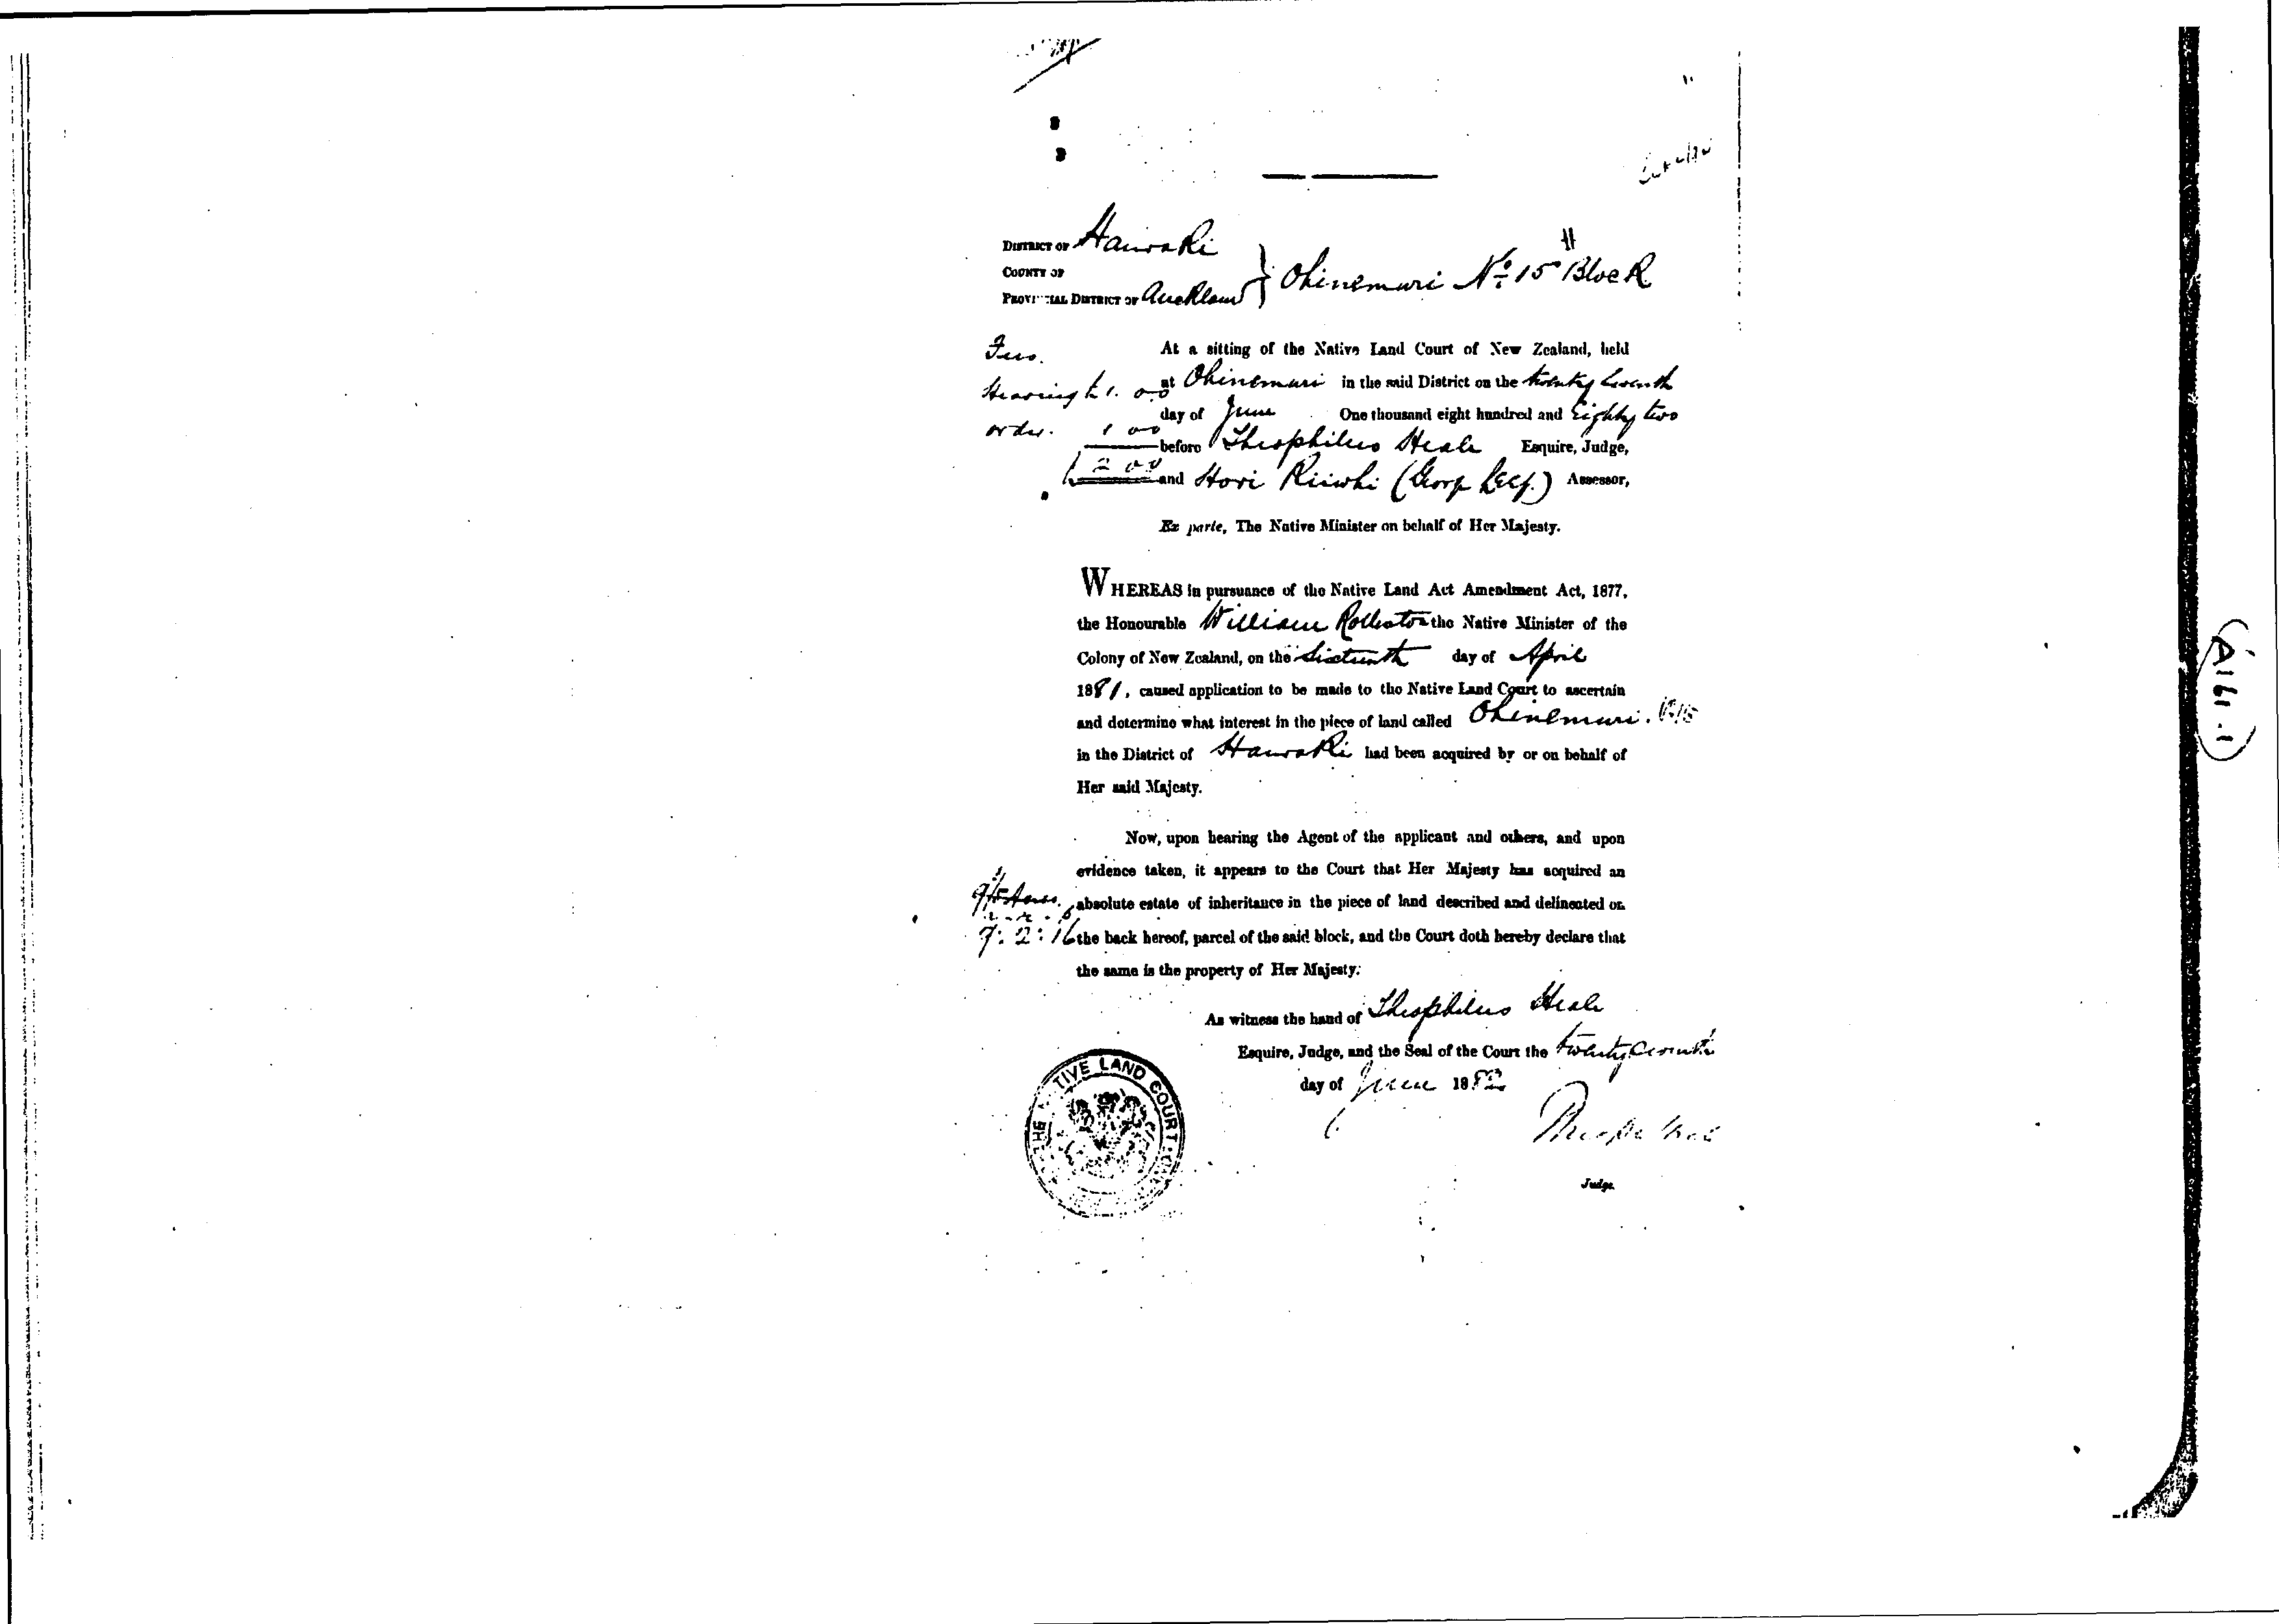 DISTRICT OF Hauraki
COUNTY OF
PROVINCIAL DISTRICT OF Auckland } Ohinemuri No. 15 Block
H
Fees.
At a sitting of the Native Land Court of New Zealand, held
Hearing £1. 0 0
at Ohinemuri in the said District on the twenty seventh
day of June One thousand eight hundred and Eighty two
order. 1 0 0
before Theophilus Heale Esquire, Judge,
£2 0 0
and Hori Riiwhi (George ) Assessor,
Ex parte, The Native Minister on behalf of Her Majesty.
WHEREAS in pursuance of the Native Land Act Amendment Act, 1877,
the Honourable William Rolleston the Native Minister of the
Colony of New Zealand, on the Sixteenth day of April
1881, caused application to be made to the Native Land Court to ascertain
and determine what interest in the piece of land called Ohinemuri. No 15
in the District of Hauraki had been acquired by or on behalf of
Her said Majesty.
Now, upon hearing the Agent of the applicant and others, and upon
evidence taken, it appears to the Court that Her Majesty has acquired an
absolute estate of inheritance in the piece of land described and delineated on
9: 2: 16
the back hereof, parcel of the said block, and the Court doth hereby declare that
the same is the property of Her Majesty.
As witness the hand of Theophilus Heale
Esquire, Judge, and the Seal of the Court the twenty seventh
day of June 1882
THE NATIVE LAND COURT
Theoph Heale
Judge.
(A161.1)